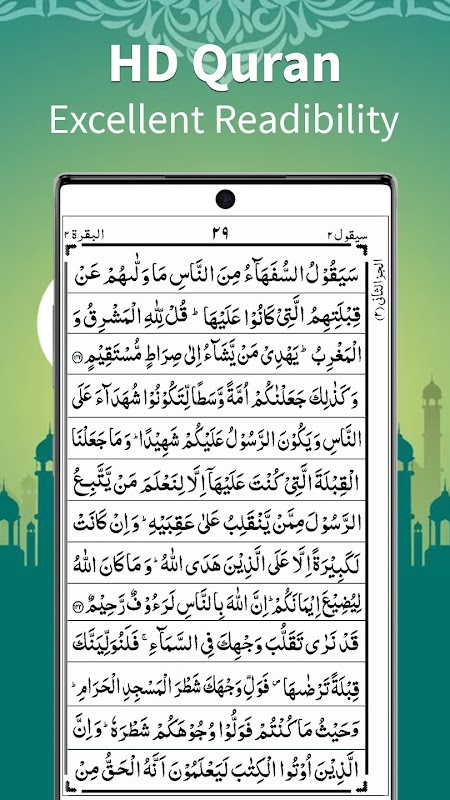 HD Quran
Excellent Readibility
سيقول ٢
٢٩
البقرة ٢
الجزء الثانى (٢)
سَيَقُوْلُ السُّفَهَآءُ مِنَ النَّاسِ مَا وَلّٰىهُمْ عَنْ
قِبْلَتِهِمُ الَّتِيْ كَانُوْا عَلَيْهَا ؕ قُلْ لِّلّٰهِ الْمَشْرِقُ وَ
الْمَغْرِبُ ؕ يَهْدِيْ مَنْ يَّشَآءُ اِلٰى صِرَاطٍ مُّسْتَقِيْمٍ
وَ كَذٰلِكَ جَعَلْنٰكُمْ اُمَّةً وَّسَطًا لِّتَكُوْنُوْا شُهَدَآءَ عَلَى
النَّاسِ وَ يَكُوْنَ الرَّسُوْلُ عَلَيْكُمْ شَهِيْدًا ؕ وَ مَا جَعَلْنَا
الْقِبْلَةَ الَّتِيْ كُنْتَ عَلَيْهَاۤ اِلَّا لِنَعْلَمَ مَنْ يَّتَّبِعُ
الرَّسُوْلَ مِمَّنْ يَّنْقَلِبُ عَلٰى عَقِبَيْهِ ؕ وَ اِنْ كَانَتْ
لَكَبِيْرَةً اِلَّا عَلَى الَّذِيْنَ هَدَى اللّٰهُ ؕ وَ مَا كَانَ اللّٰهُ
لِيُضِيْعَ اِيْمَانَكُمْ ؕ اِنَّ اللّٰهَ بِالنَّاسِ لَرَءُوْفٌ رَّحِيْمٌ
قَدْ نَرٰى تَقَلُّبَ وَجْهِكَ فِي السَّمَآءِ ۚ فَلَنُوَلِّيَنَّكَ
قِبْلَةً تَرْضٰىهَا ۪ فَوَلِّ وَجْهَكَ شَطْرَ الْمَسْجِدِ الْحَرَامِ ؕ
وَ حَيْثُ مَا كُنْتُمْ فَوَلُّوْا وُجُوْهَكُمْ شَطْرَهٗ ؕ وَ اِنَّ
الَّذِيْنَ اُوْتُوا الْكِتٰبَ لَيَعْلَمُوْنَ اَنَّهُ الْحَقُّ مِنْ